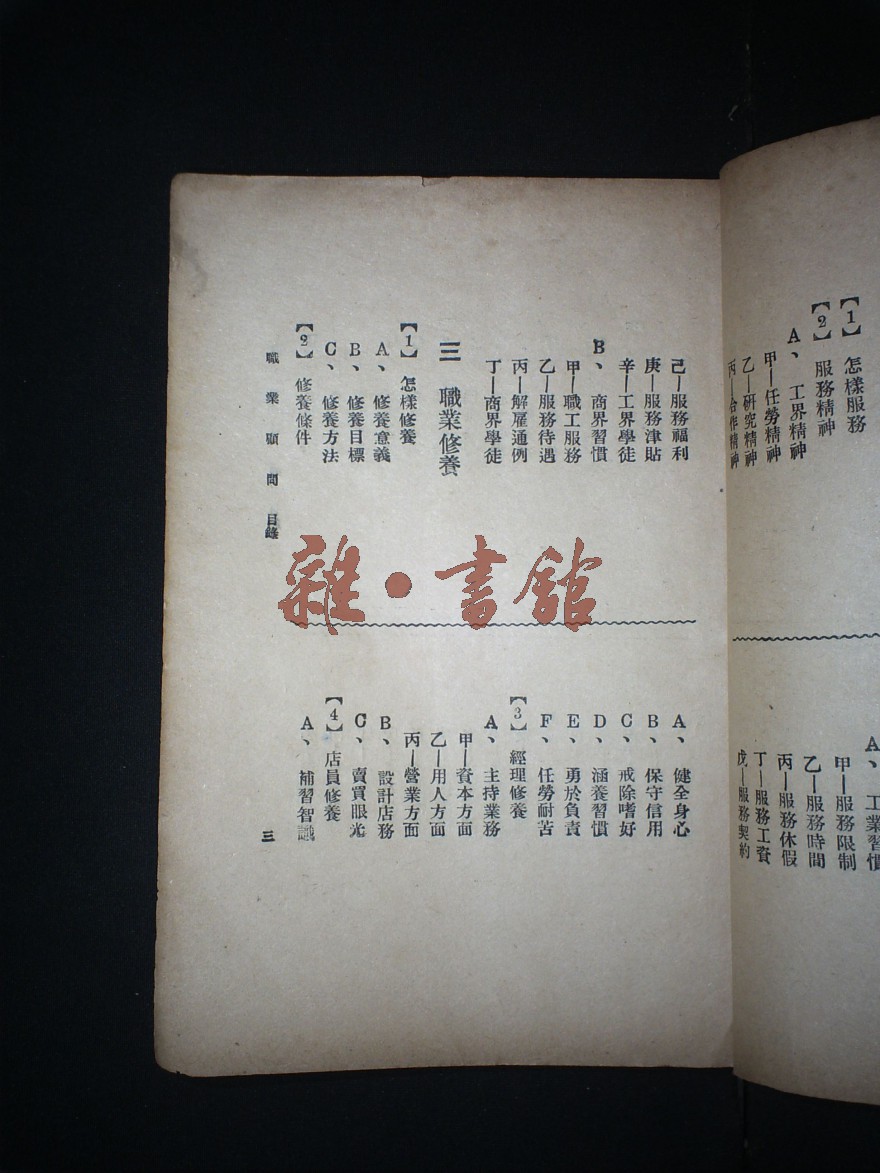 【1】 怎樣服務
【2】 服務精神
A、工界精神
甲—任勞精神
乙—研究精神
丙—合作精神
A、工業習慣
甲—服務限制
乙—服務時間
丙—服務休假
丁—服務工資
戊—服務契約
己—服務福利
庚—服務津貼
辛—工界學徒
B、商界習慣
甲—職工服務
乙—服務待遇
丙—解雇通例
丁—商界學徒
三 職業修養
【1】 怎樣修養
A、修養意義
B、修養目標
C、修養方法
【2】 修養條件
A、健全身心
B、保守信用
C、戒除嗜好
D、涵養習慣
E、勇於負責
F、任勞耐苦
【3】 經理修養
A、主持業務
甲—資本方面
乙—用人方面
丙—營業方面
B、設計店務
C、賣買眼光
【4】 店員修養
A、補習智識
職業顧問 目錄
三
雜·書館